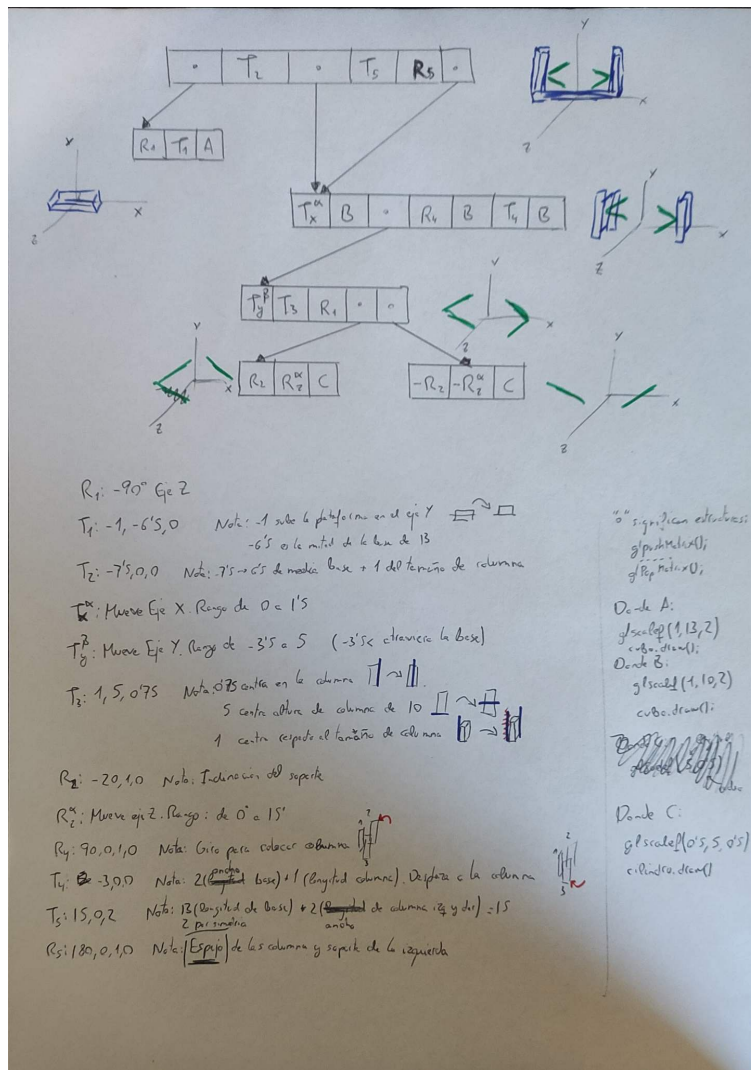 ∘ T₂ ∘ T₅ R₅ ∘
R₁ T₁ A
Tₓ^α B ∘ R₄ B T₄ B
T_y^β T₃ R₁ ∘ ∘
R₂ R_z^α C
-R₂ -R_z^α C
R₁: -90° Eje Z
T₁: -1, -6'5, 0 Nota: -1 sube la plataforma en el eje Y
-6'5 es la mitad de la base de 13
T₂: -7'5, 0, 0 Nota: -7'5 → 6'5 de media base + 1 del tamaño de columna
Tₓ^α: Mueve Eje X. Rango de 0 a 1'5
T_y^β: Mueve Eje Y. Rango de -3'5 a 5 (-3'5< atraviesa la base)
T₃: 1, 5, 0'75 Nota: 0'75 centra en la columna
5 centra altura de columna de 10
1 centra respecto al tamaño de columna
R₂: -20,1,0 Nota: Inclinación del soporte
R_z^α: Mueve eje Z. Rango: de 0° a 15°
R₄: 90,0,1,0 Nota: Giro para colocar columna
T₄: -3,0,0 Nota: 2( base) + 1 (longitud columna). Desplaza a la columna
T₅: 15,0,2 Nota: 13 (longitud de base) + 2 (ancho de columna izq y der) = 15
2 por simetría
R₅: 180,0,1,0 Nota: Espejo de las columna y soporte de la izquierda
"∘" significan estructuras:
glPushMatrix();
glPopMatrix();
Donde A:
glscalef(1,13,2)
cubo.draw();
Donde B:
glscalef(1,10,2)
cubo.draw();
Donde C:
glscalef(0'5, 5, 0'5)
cilindro.draw()